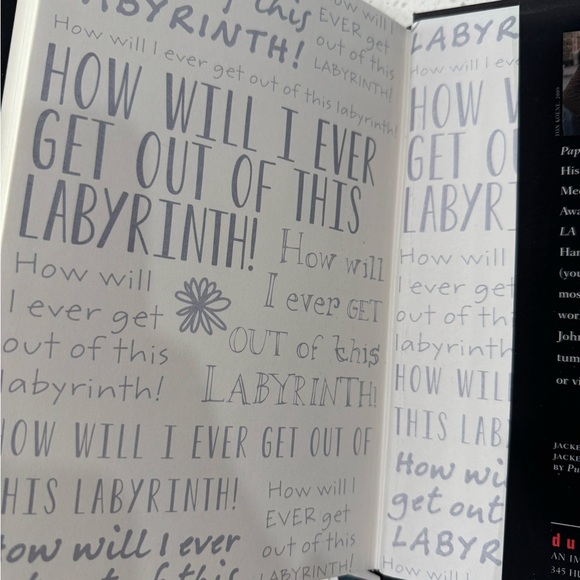 my this
LABYRINTH!
How will I
EVER get
out of this
LABYRINTH!
How will I ever get out of this labyrinth!
HOW WILL I EVER
GET OUT OF THIS
LABYRINTH!
How will
I ever get
out of this
labyrinth!
How will
I ever GET
OUT of this
LABYRINTH!
HOW WILL I EVER GET OUT OF
THIS LABYRINTH!
How will I
EVER get
out of this
LABYRINTH!
How will I ever
out of this
LABYR
How will I eve
HOW
GET OU
LABYR
How will
I ever get
out of th
labyrinth
HOW WIL
THIS LAB
How wi
get out
LABYR
How will I
TON KOENE, 2009
Pap
His
Me
Awa
LA
Har
(you
mos
wor
John
tum
or vi
JACKE
JACKE
BY
du
AN IM
345 H